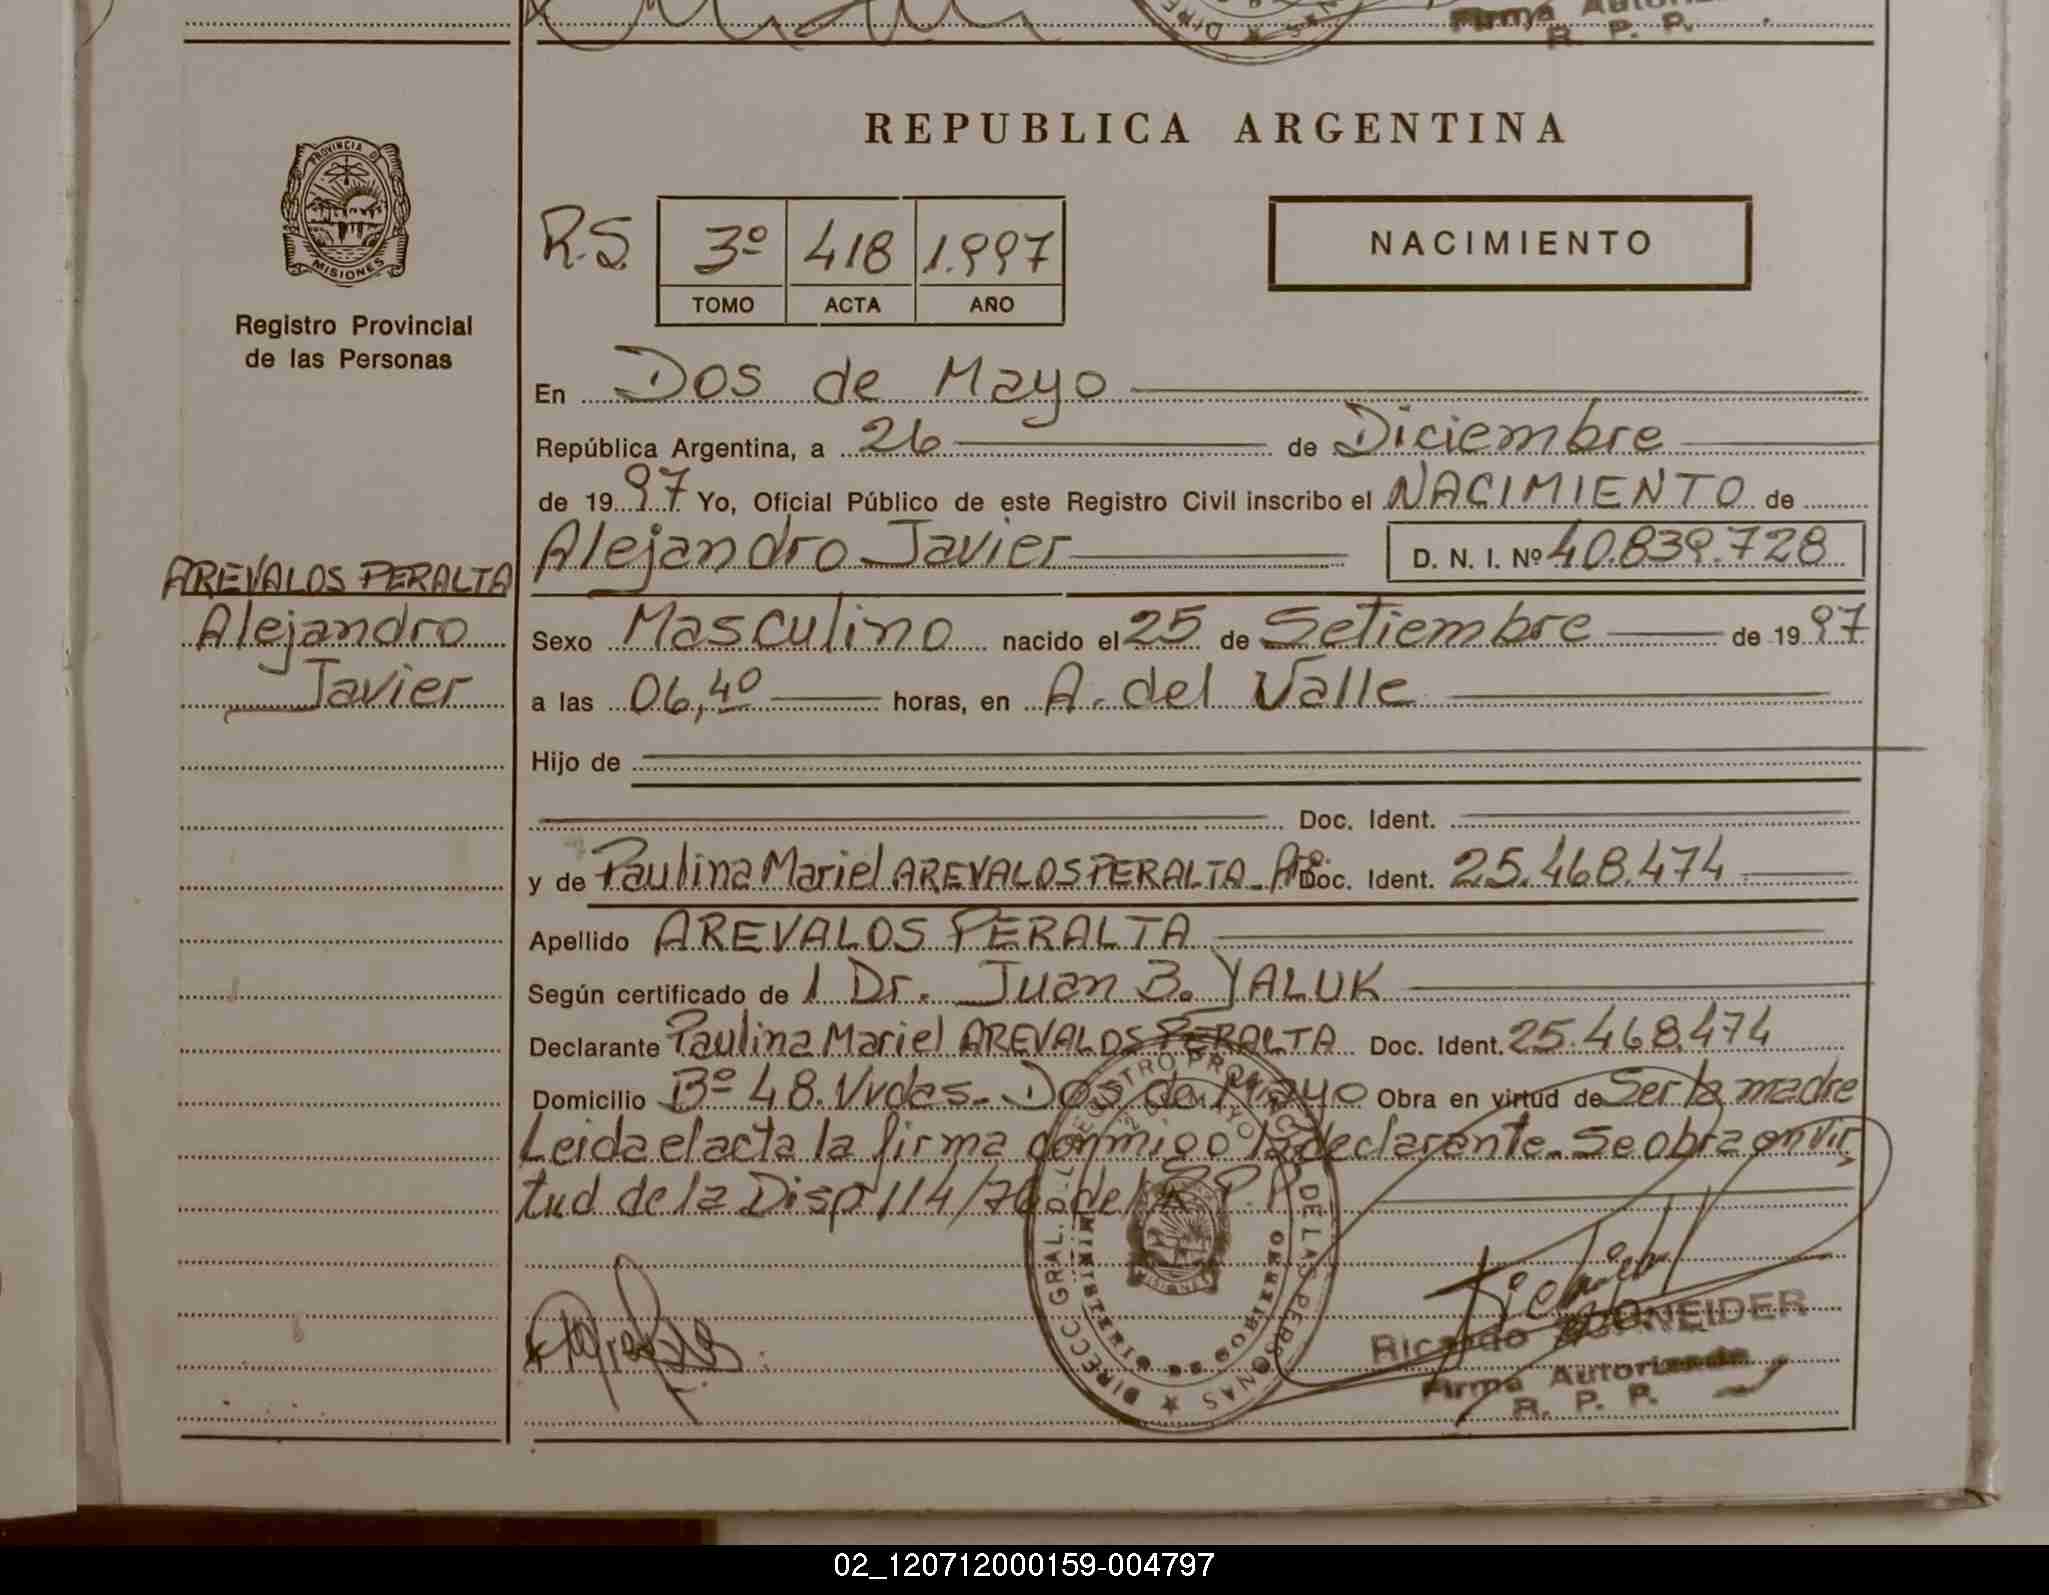 Firma Autori
R. P. P.
REPUBLICA ARGENTINA
PROVINCIA DE
MISIONES
Registro Provincial
de las Personas
R.S. 3º 418 1.997
TOMO ACTA AÑO
NACIMIENTO
En Dos de Mayo
República Argentina, a 26 de Diciembre
de 1997 Yo, Oficial Público de este Registro Civil inscribo el NACIMIENTO de
Alejandro Javier D. N. I. Nº 40.839.728
AREVALOS PERALTA
Alejandro
Javier
Sexo Masculino nacido el 25 de Setiembre de 1997
a las 06,40 horas, en A. del Valle
Hijo de
Doc. Ident.
y de Paulina Mariel AREVALOS PERALTA - Arg. Doc. Ident. 25.468.474
Apellido AREVALOS PERALTA
Según certificado de 1 Dr. Juan B. YALUK
Declarante Paulina Mariel AREVALOS PERALTA Doc. Ident. 25.468.474
Domicilio Bº 48 Vvdas. - Dos de Mayo Obra en virtud de Ser la madre
Leida el acta la firma conmigo la declarante. Se obra en vir
tud de la Disp 114/76 del R.P.P.
DIRECC. GRAL. DEL REGISTRO PROVINCIAL DE LAS PERSONAS
MISIONES
Ricardo SCHNEIDER
Firma Autorizada
R. P. P.
02_120712000159-004797